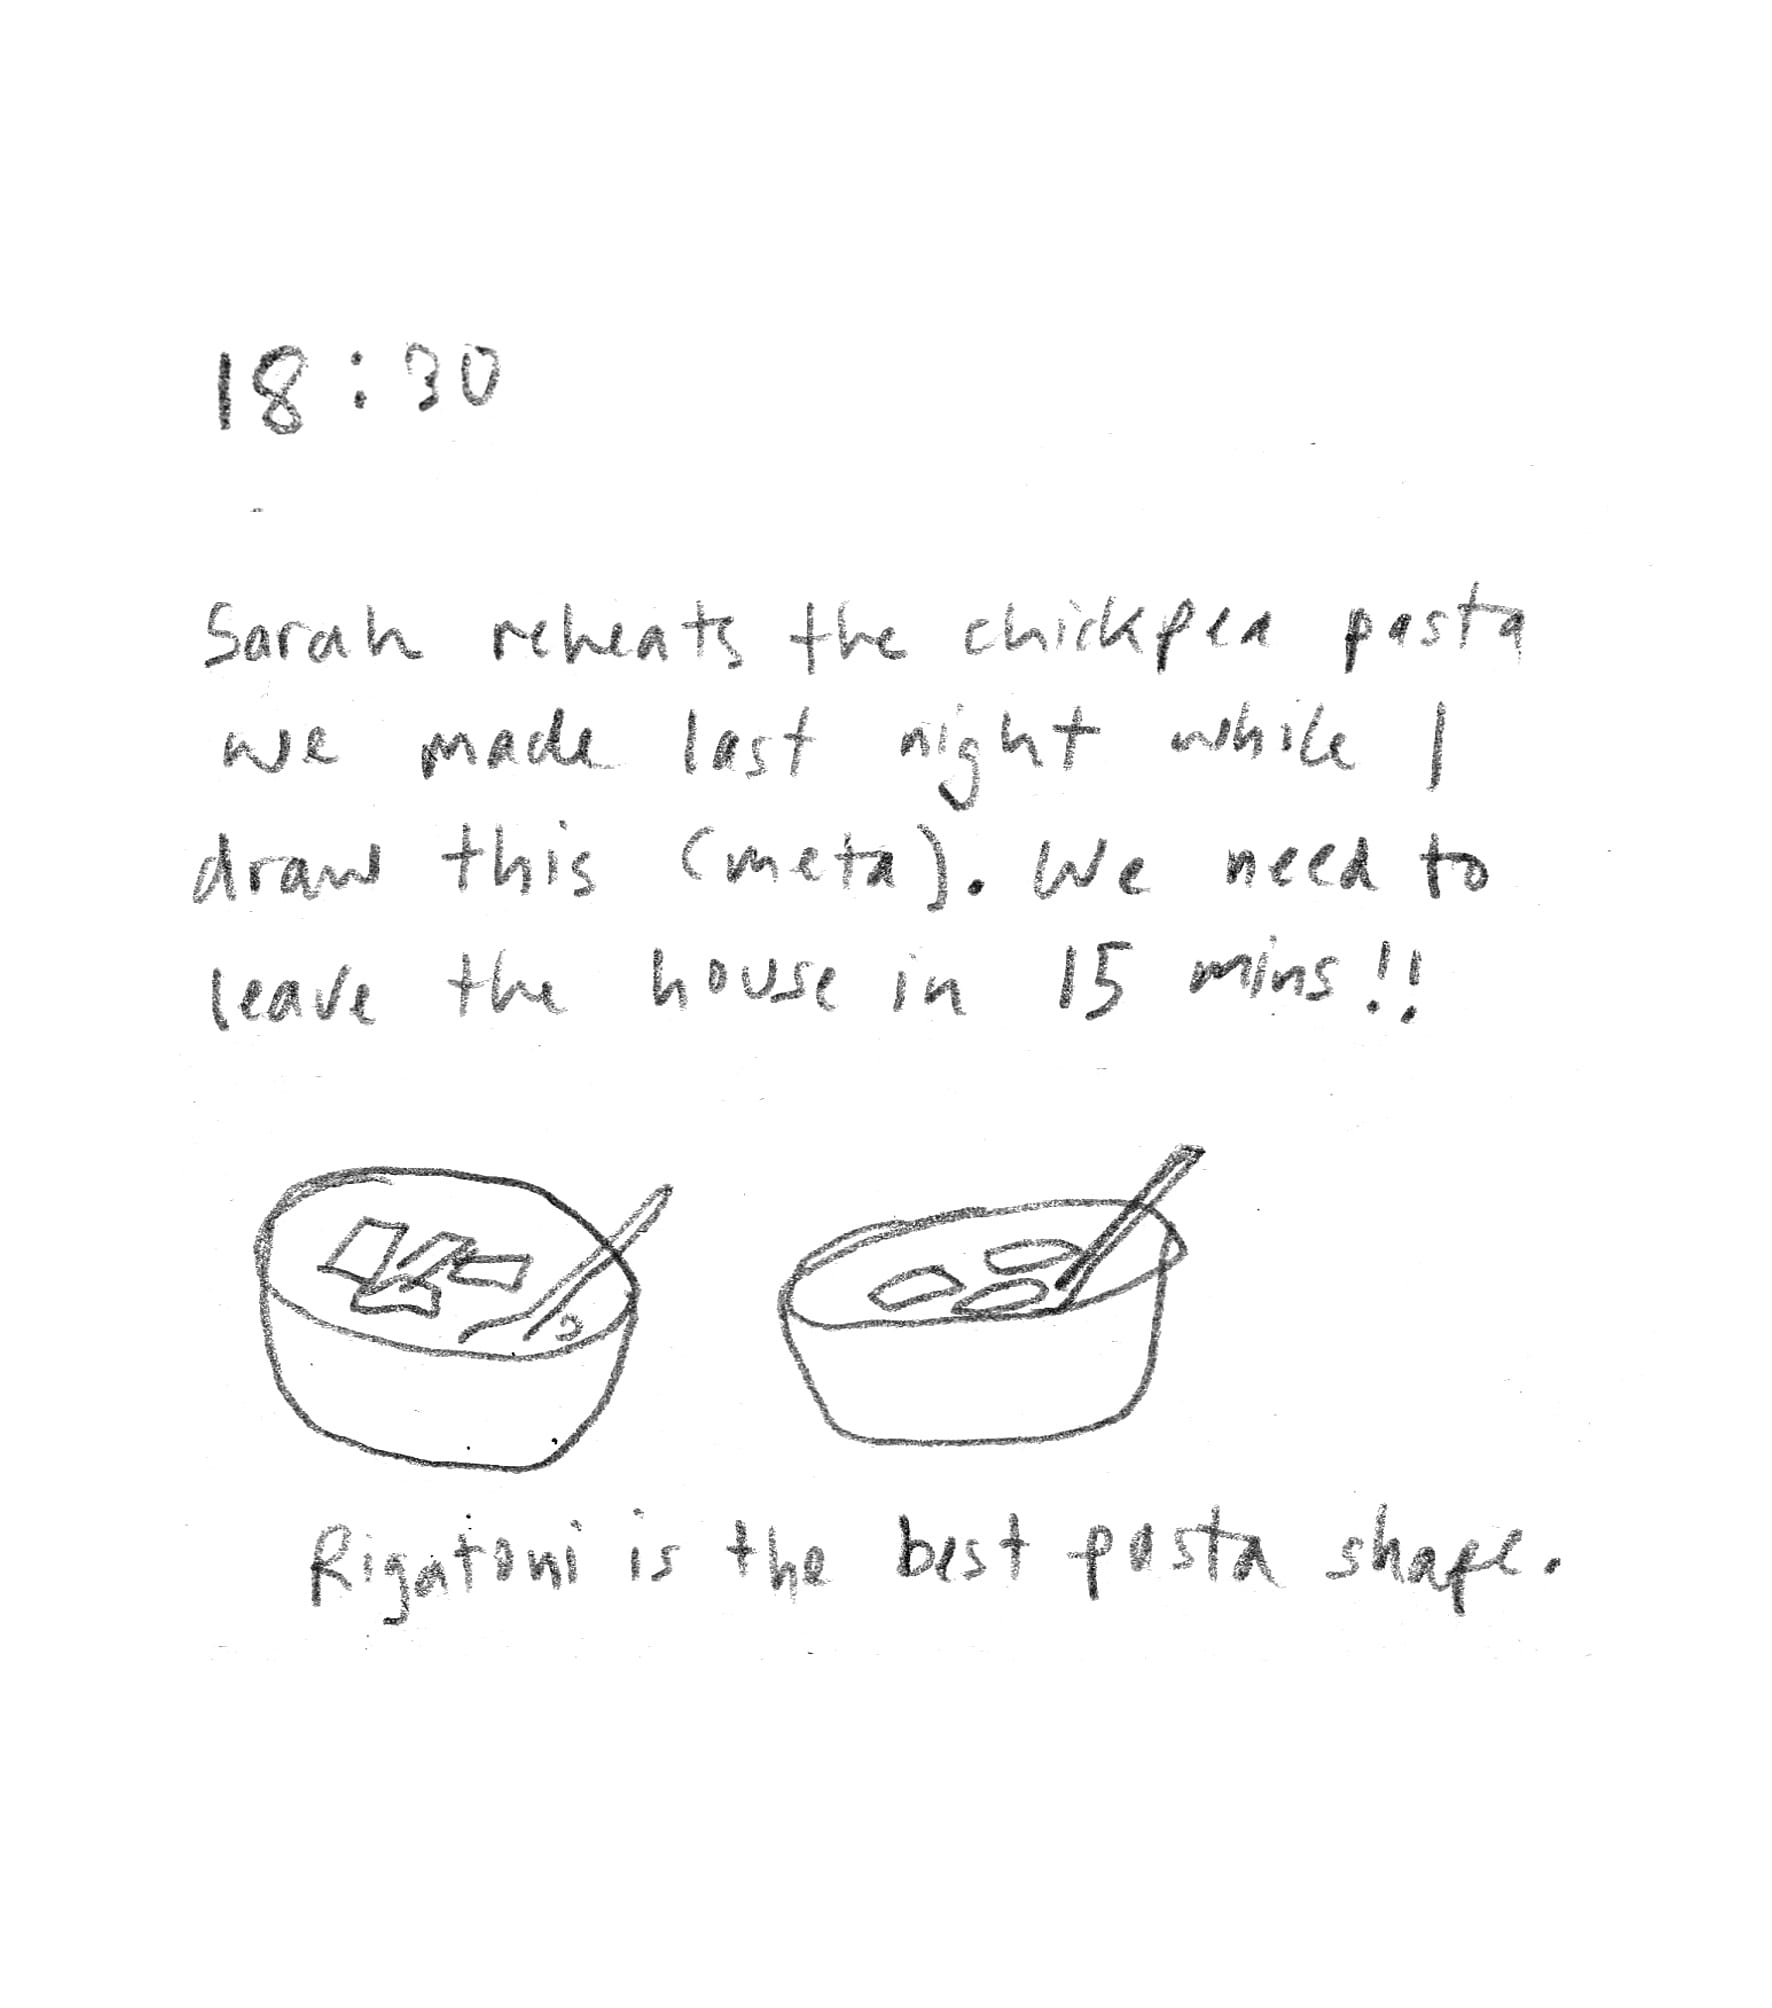 18:30
Sarah reheats the chickpea pasta
we made last night while I
draw this (meta). We need to
leave the house in 15 mins!!
Rigatoni is the best pasta shape.